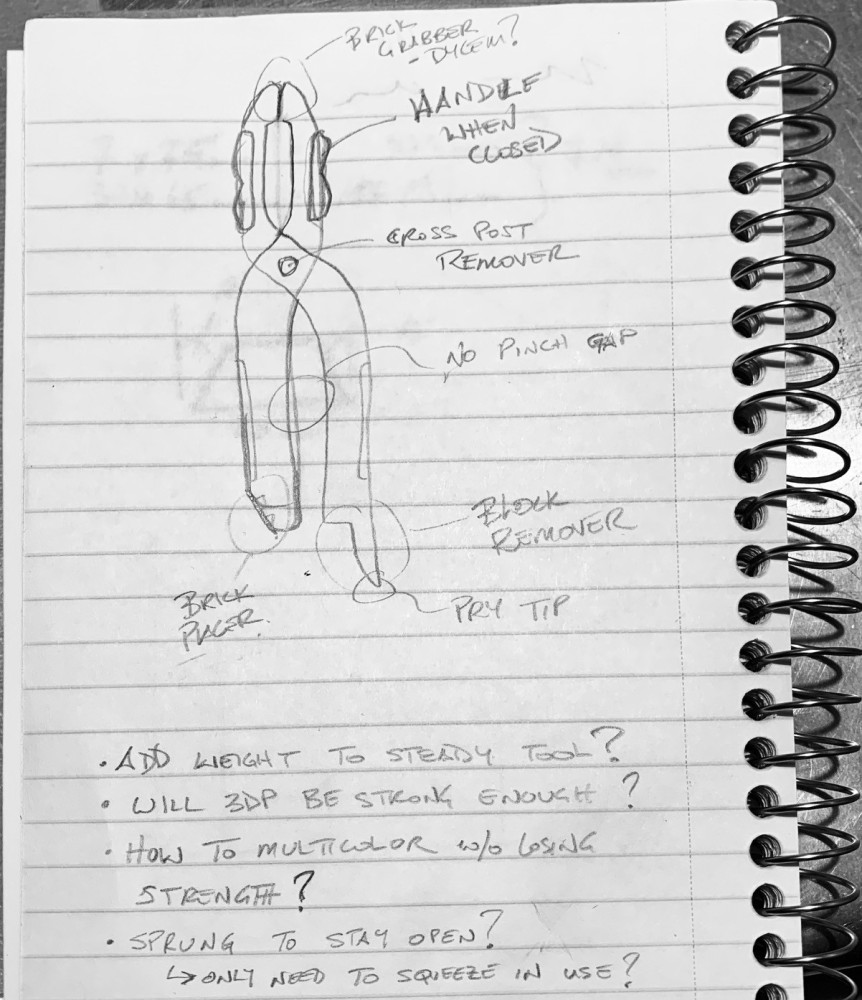 BRICK
GRABBER
- DYCEM?
HANDLE
WHEN
CLOSED
CROSS POST
REMOVER
NO PINCH GAP
BLOCK
REMOVER
BRICK
PLACER
PRY TIP
• ADD WEIGHT TO STEADY TOOL?
• WILL 3DP BE STRONG ENOUGH?
• HOW TO MULTICOLOR W/O LOSING
STRENGTH?
• SPRUNG TO STAY OPEN?
↳ ONLY NEED TO SQUEEZE IN USE?